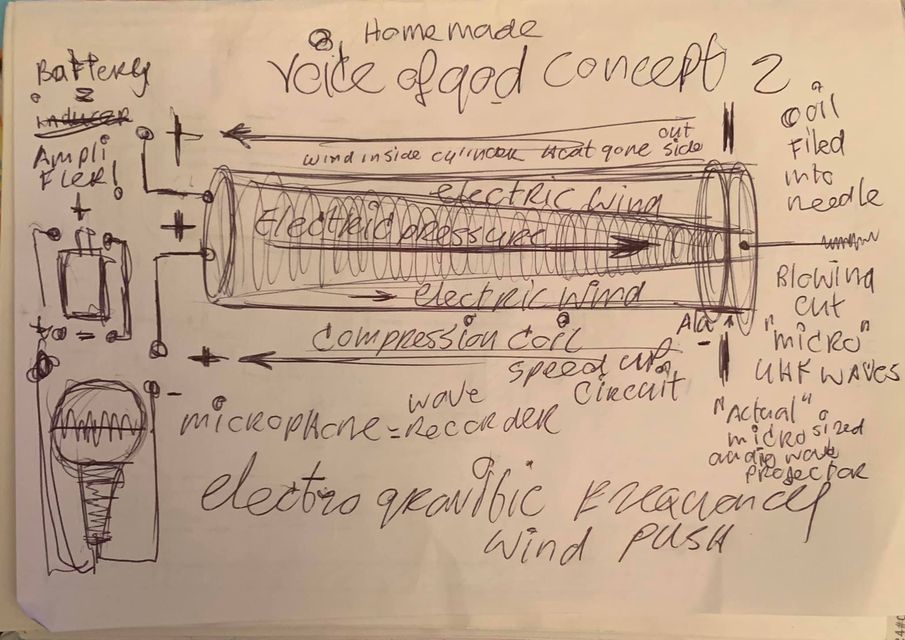 Homemade
Voice of god Concept 2
Battery
Ampli
Fier!
+
+
+
+
+
-
-
-
out
wind inside cylinder heat gone side
electric wind
Electric pressure
electric wind
Compression coil
speed up
circuit
coil
Filed
into
needle
Blowing
out
"micro"
UHF WAVES
"Actual"
micro sized
audio wave
projector
wave
microphone = recorder
electro gravitic Frequency
wind push